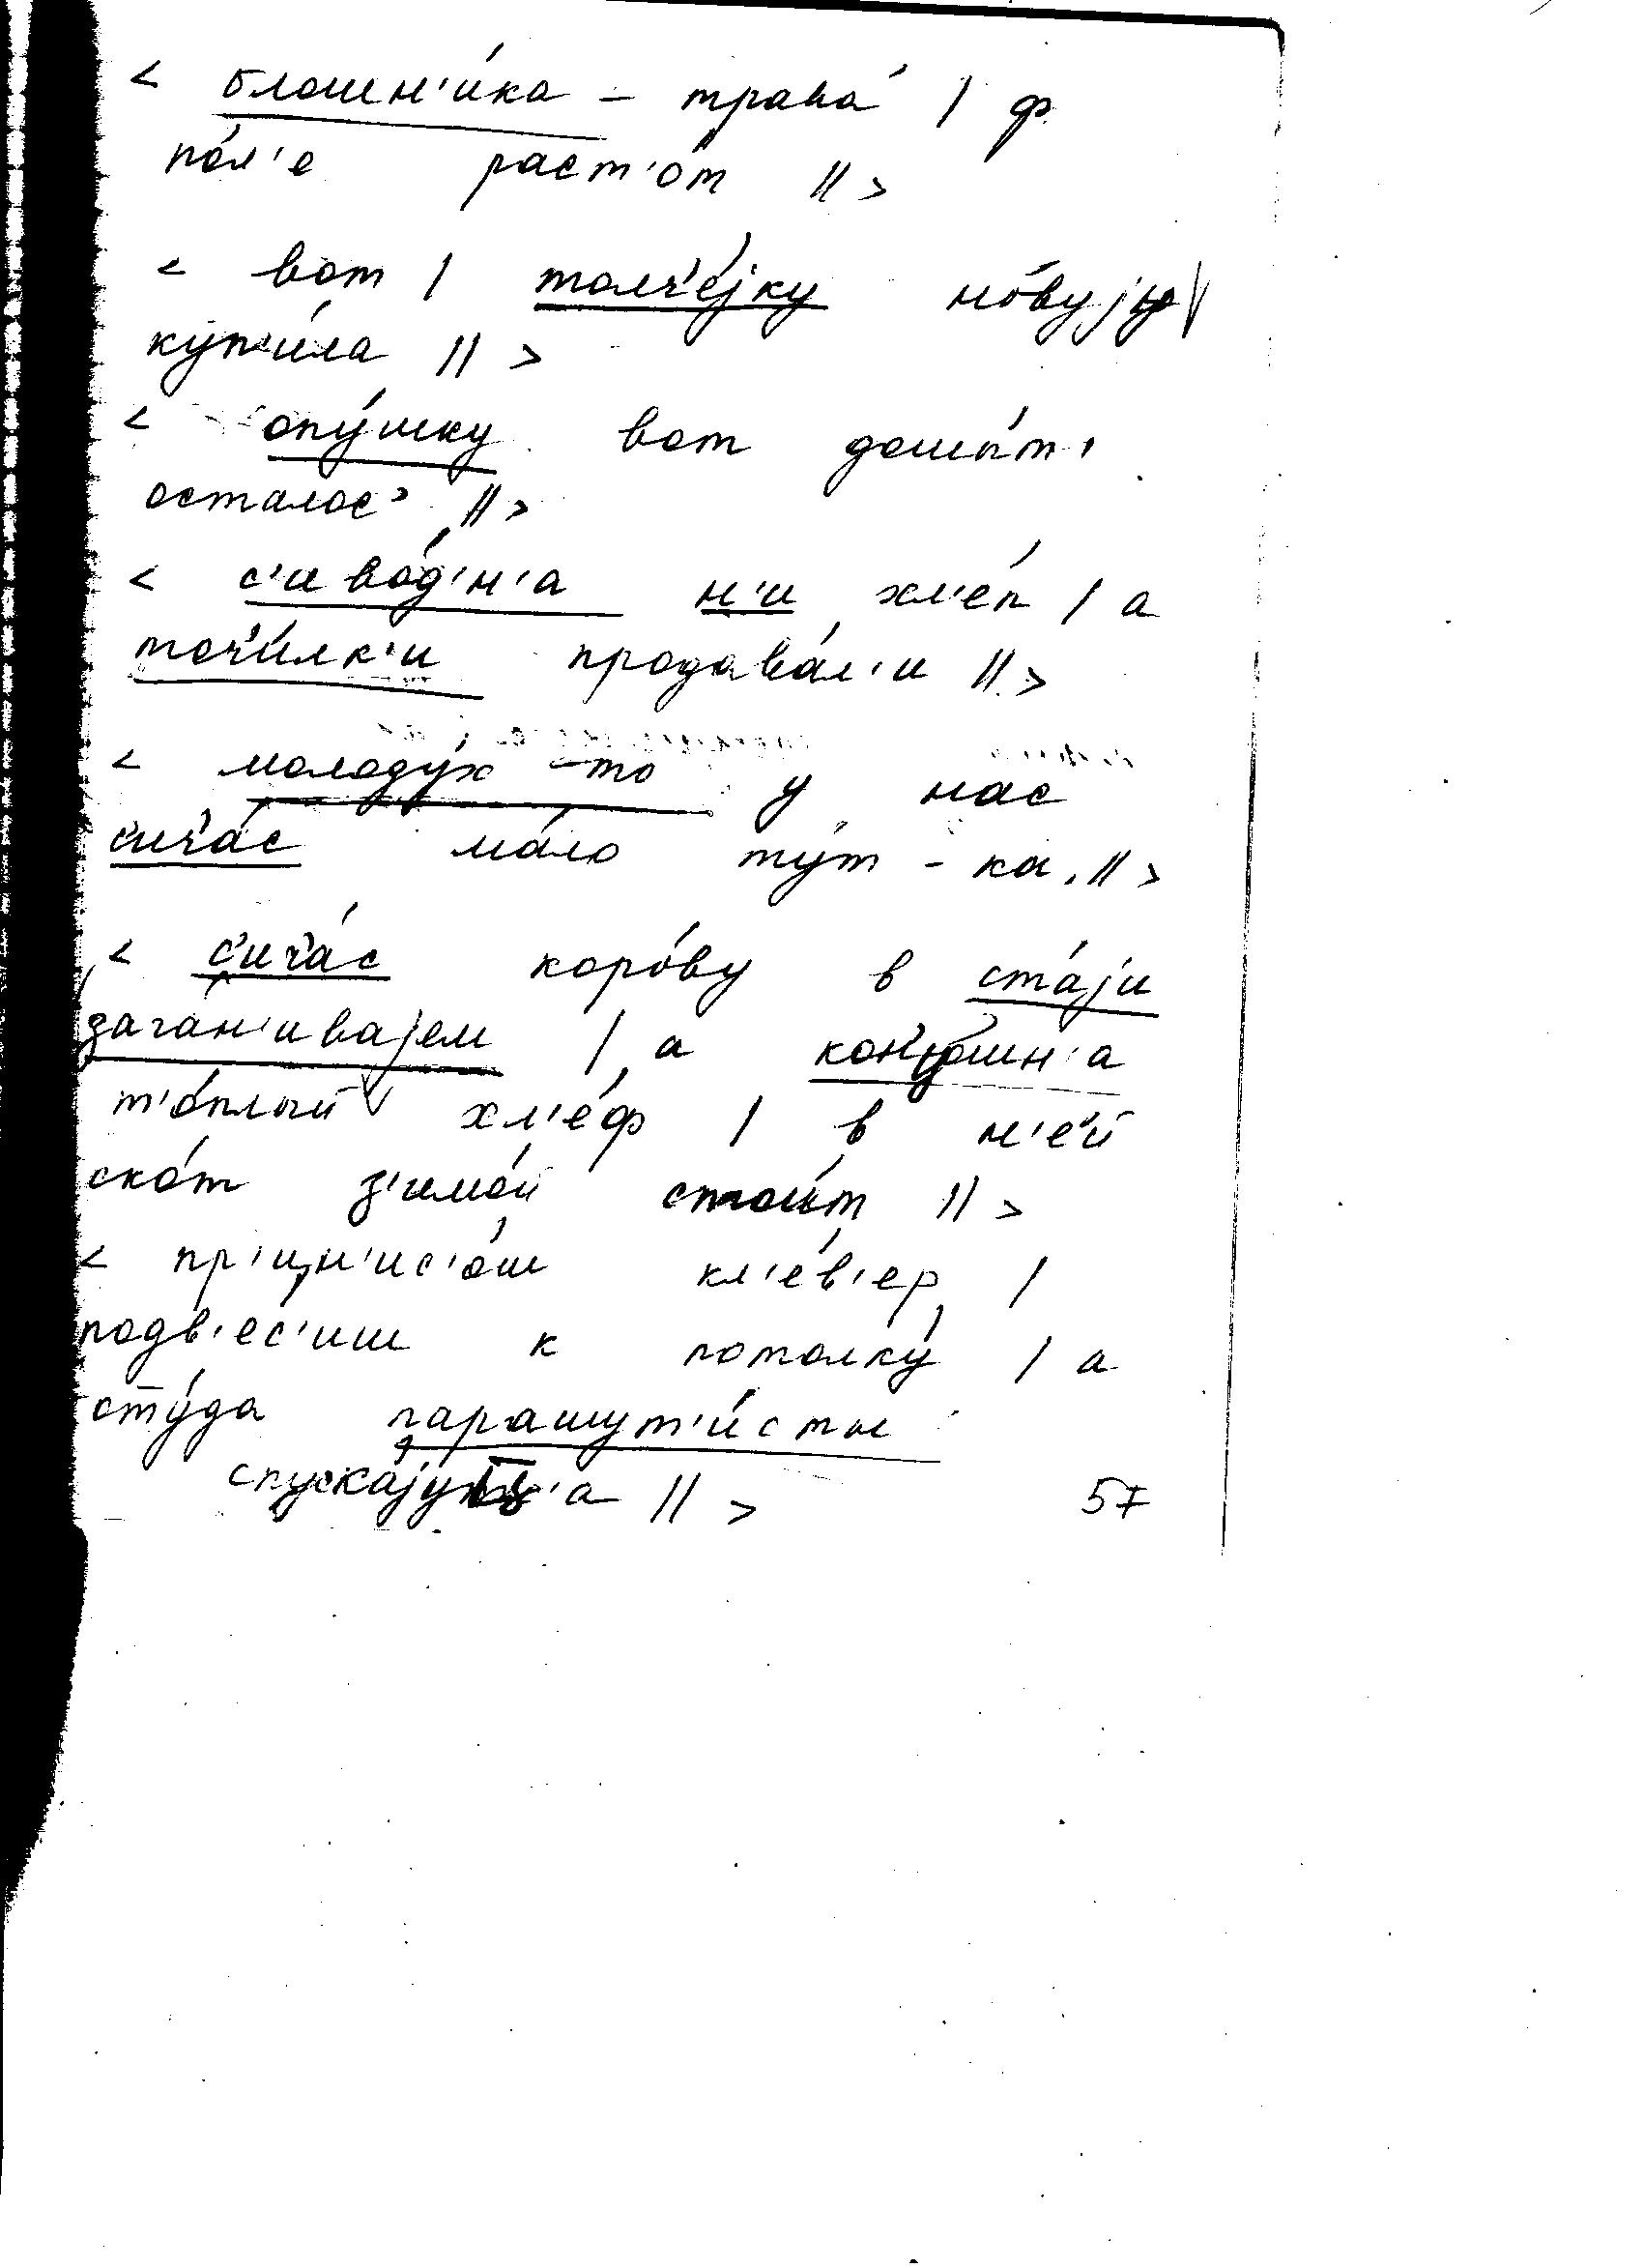 < блошн'и́ка – трава́ / ф
по́л'е раст'о́т // >
< вот / толч'е́jку но́вуjу
куп'и́ла // >
< опу́шку вот дошы́т'
осталос' // >
< с'иво́д'н'а н'и хл'е́п / а
точ'и́лк'и продава́л'и // >
< молоду́х – то у нас
сича́с ма́ло ту́т – ка // >
< с'ич'а́с коро́ву в ста́jи
заган'иваjем / а кон'у́шн'а
т'о́плый хл'е́ф / в н'е́й
ско́т з'имо́й стои́т // >
< пр'ин'ис'о́ш кл'е́в'ер /
подв'ес'иш к потолку́ / а
сту́да парашут'и́сты
спуска́jуца // >
57